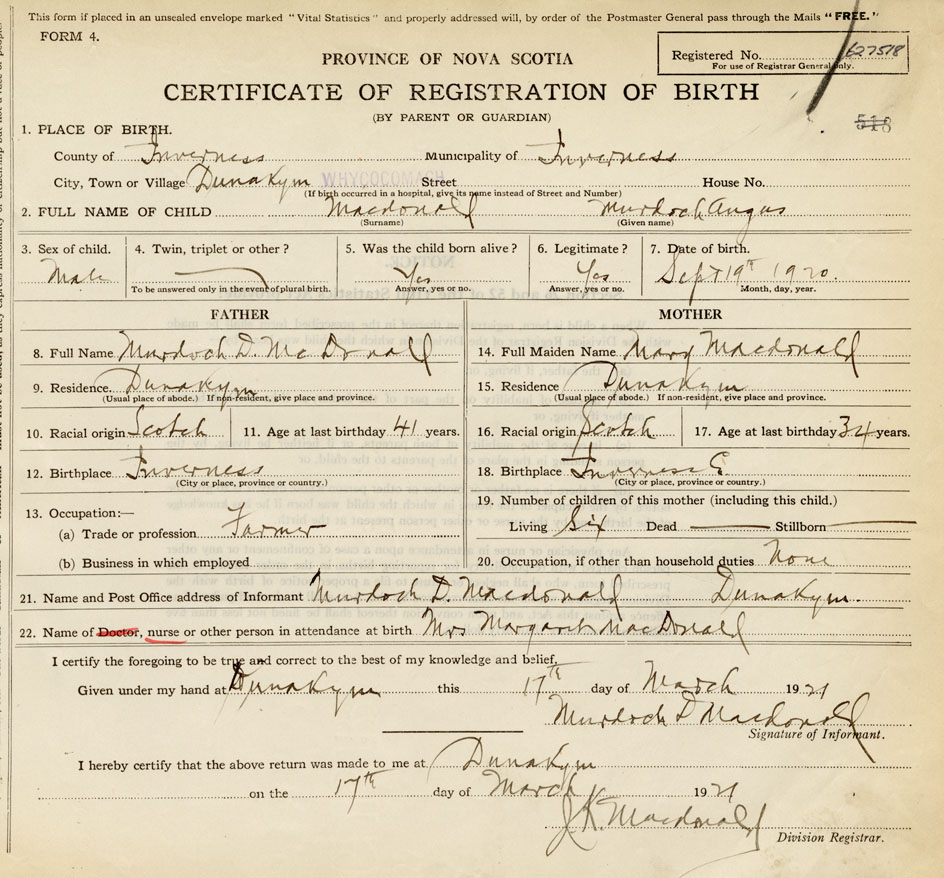 This form if placed in an unsealed envelope marked "Vital Statistics" and properly addressed will, by order of the Postmaster General pass through the Mails "FREE."
FORM 4.
Registered No. 627518
For use of Registrar General only.
PROVINCE OF NOVA SCOTIA
CERTIFICATE OF REGISTRATION OF BIRTH
(BY PARENT OR GUARDIAN)
518
1. PLACE OF BIRTH.
County of Inverness Municipality of Inverness
City, Town or Village Dunakym WHYCOCOMAGH Street House No.
(If birth occurred in a hospital, give its name instead of Street and Number)
2. FULL NAME OF CHILD Macdonald Murdoch Angus
(Surname) (Given name)
3. Sex of child. 4. Twin, triplet or other? 5. Was the child born alive? 6. Legitimate? 7. Date of birth.
Male Yes Yes Sept 19th 1920.
To be answered only in the event of plural birth. Answer, yes or no. Answer, yes or no. Month, day, year.
FATHER MOTHER
8. Full Name Murdoch D. McDonald 14. Full Maiden Name Mary Macdonald
9. Residence. Dunakym 15. Residence Dunakym
(Usual place of abode.) If non-resident, give place and province. (Usual place of abode.) If non-resident, give place and province.
10. Racial origin Scotch 11. Age at last birthday 41 years. 16. Racial origin Scotch 17. Age at last birthday 34 years.
12. Birthplace Inverness 18. Birthplace Inverness C.
(City or place, province or country.) (City or place, province or country.)
13. Occupation:— 19. Number of children of this mother (including this child.)
(a) Trade or profession Farmer Living Six Dead Stillborn
(b) Business in which employed 20. Occupation, if other than household duties None
21. Name and Post Office address of Informant Murdoch D. Macdonald Dunakym.
22. Name of Doctor, nurse or other person in attendance at birth Mrs Margaret MacDonald
I certify the foregoing to be true and correct to the best of my knowledge and belief,
Given under my hand at Dunakym this 17th day of March 1921
Murdoch D Macdonald
Signature of Informant.
I hereby certify that the above return was made to me at Dunakym
on the 17th day of March 1921
J. K. Macdonald
Division Registrar.